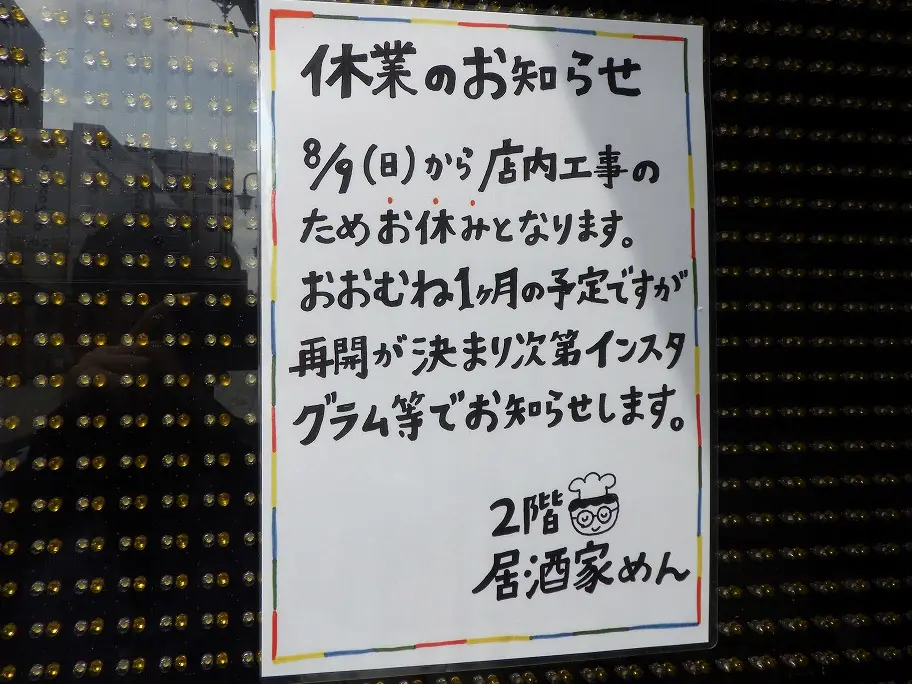 休業のお知らせ
8/9(日)から店内工事の
ためお休みとなります。
おおむね1ヶ月の予定ですが
再開が決まり次第インスタ
グラム等でお知らせします。
2階
居酒家めん